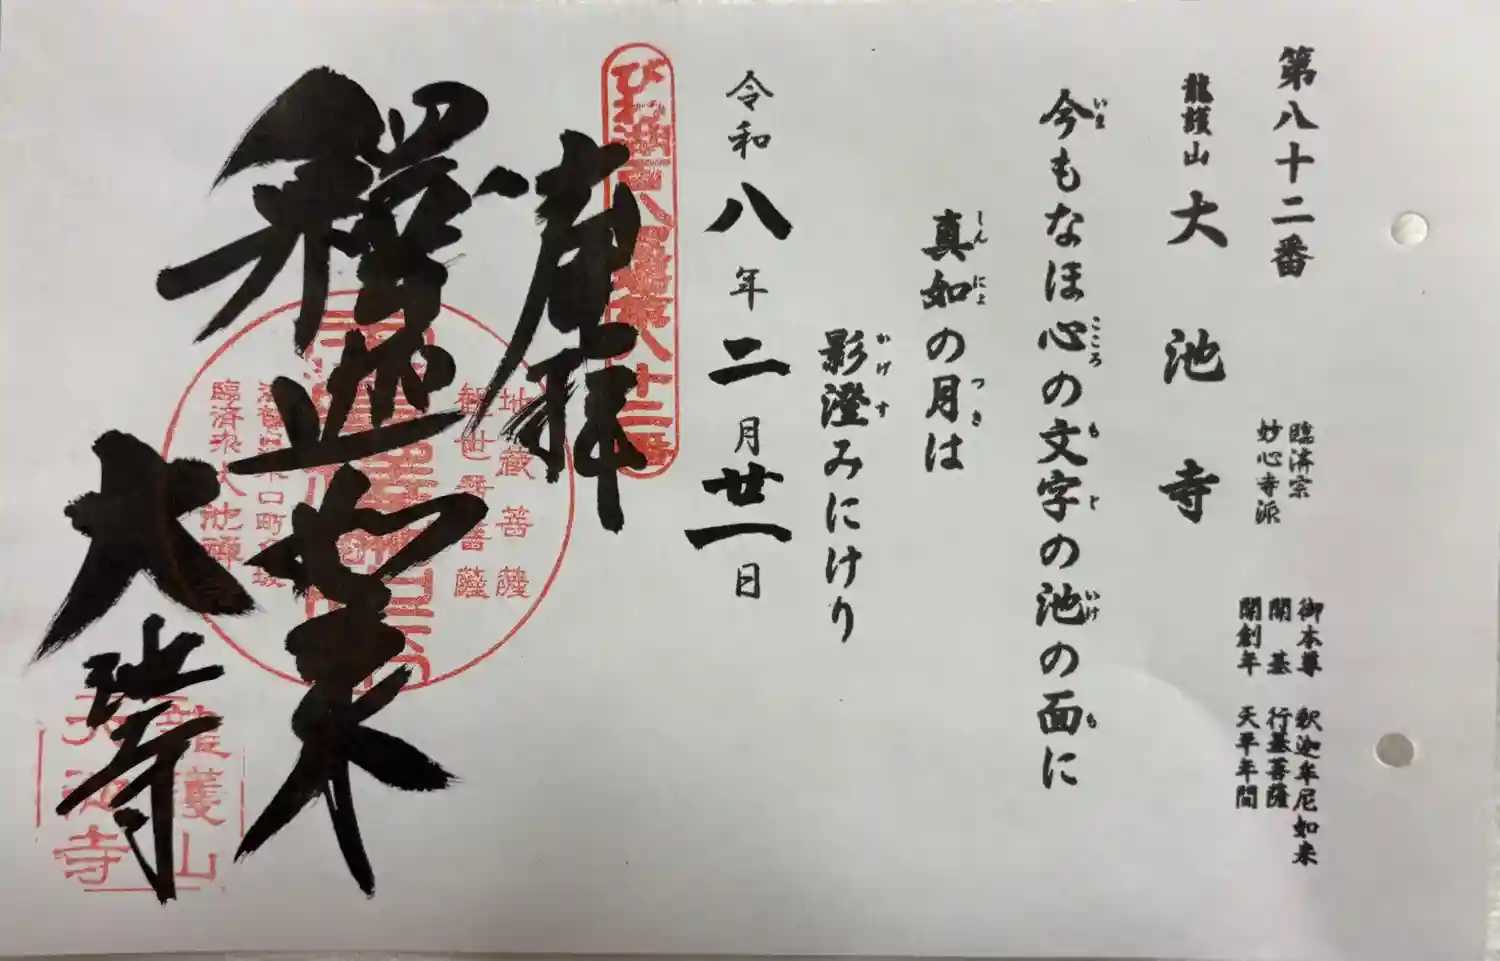 第八十二番
龍護山 大池寺
臨済宗
妙心寺派
御本尊 釈迦牟尼如来
開基 行基菩薩
開創年 天平年間
今もなほ心の文字の池の面に
いま こころ もじ いけ も
真如の月は
しんにょ つき
影澄みにけり
かげす
令和八年二月廿一日
びわ湖百八霊場第八十二番
奉拝
釋迦如来
大池寺
地蔵菩薩
観世音菩薩
臨済宗大池禅寺
龍護山
大池寺